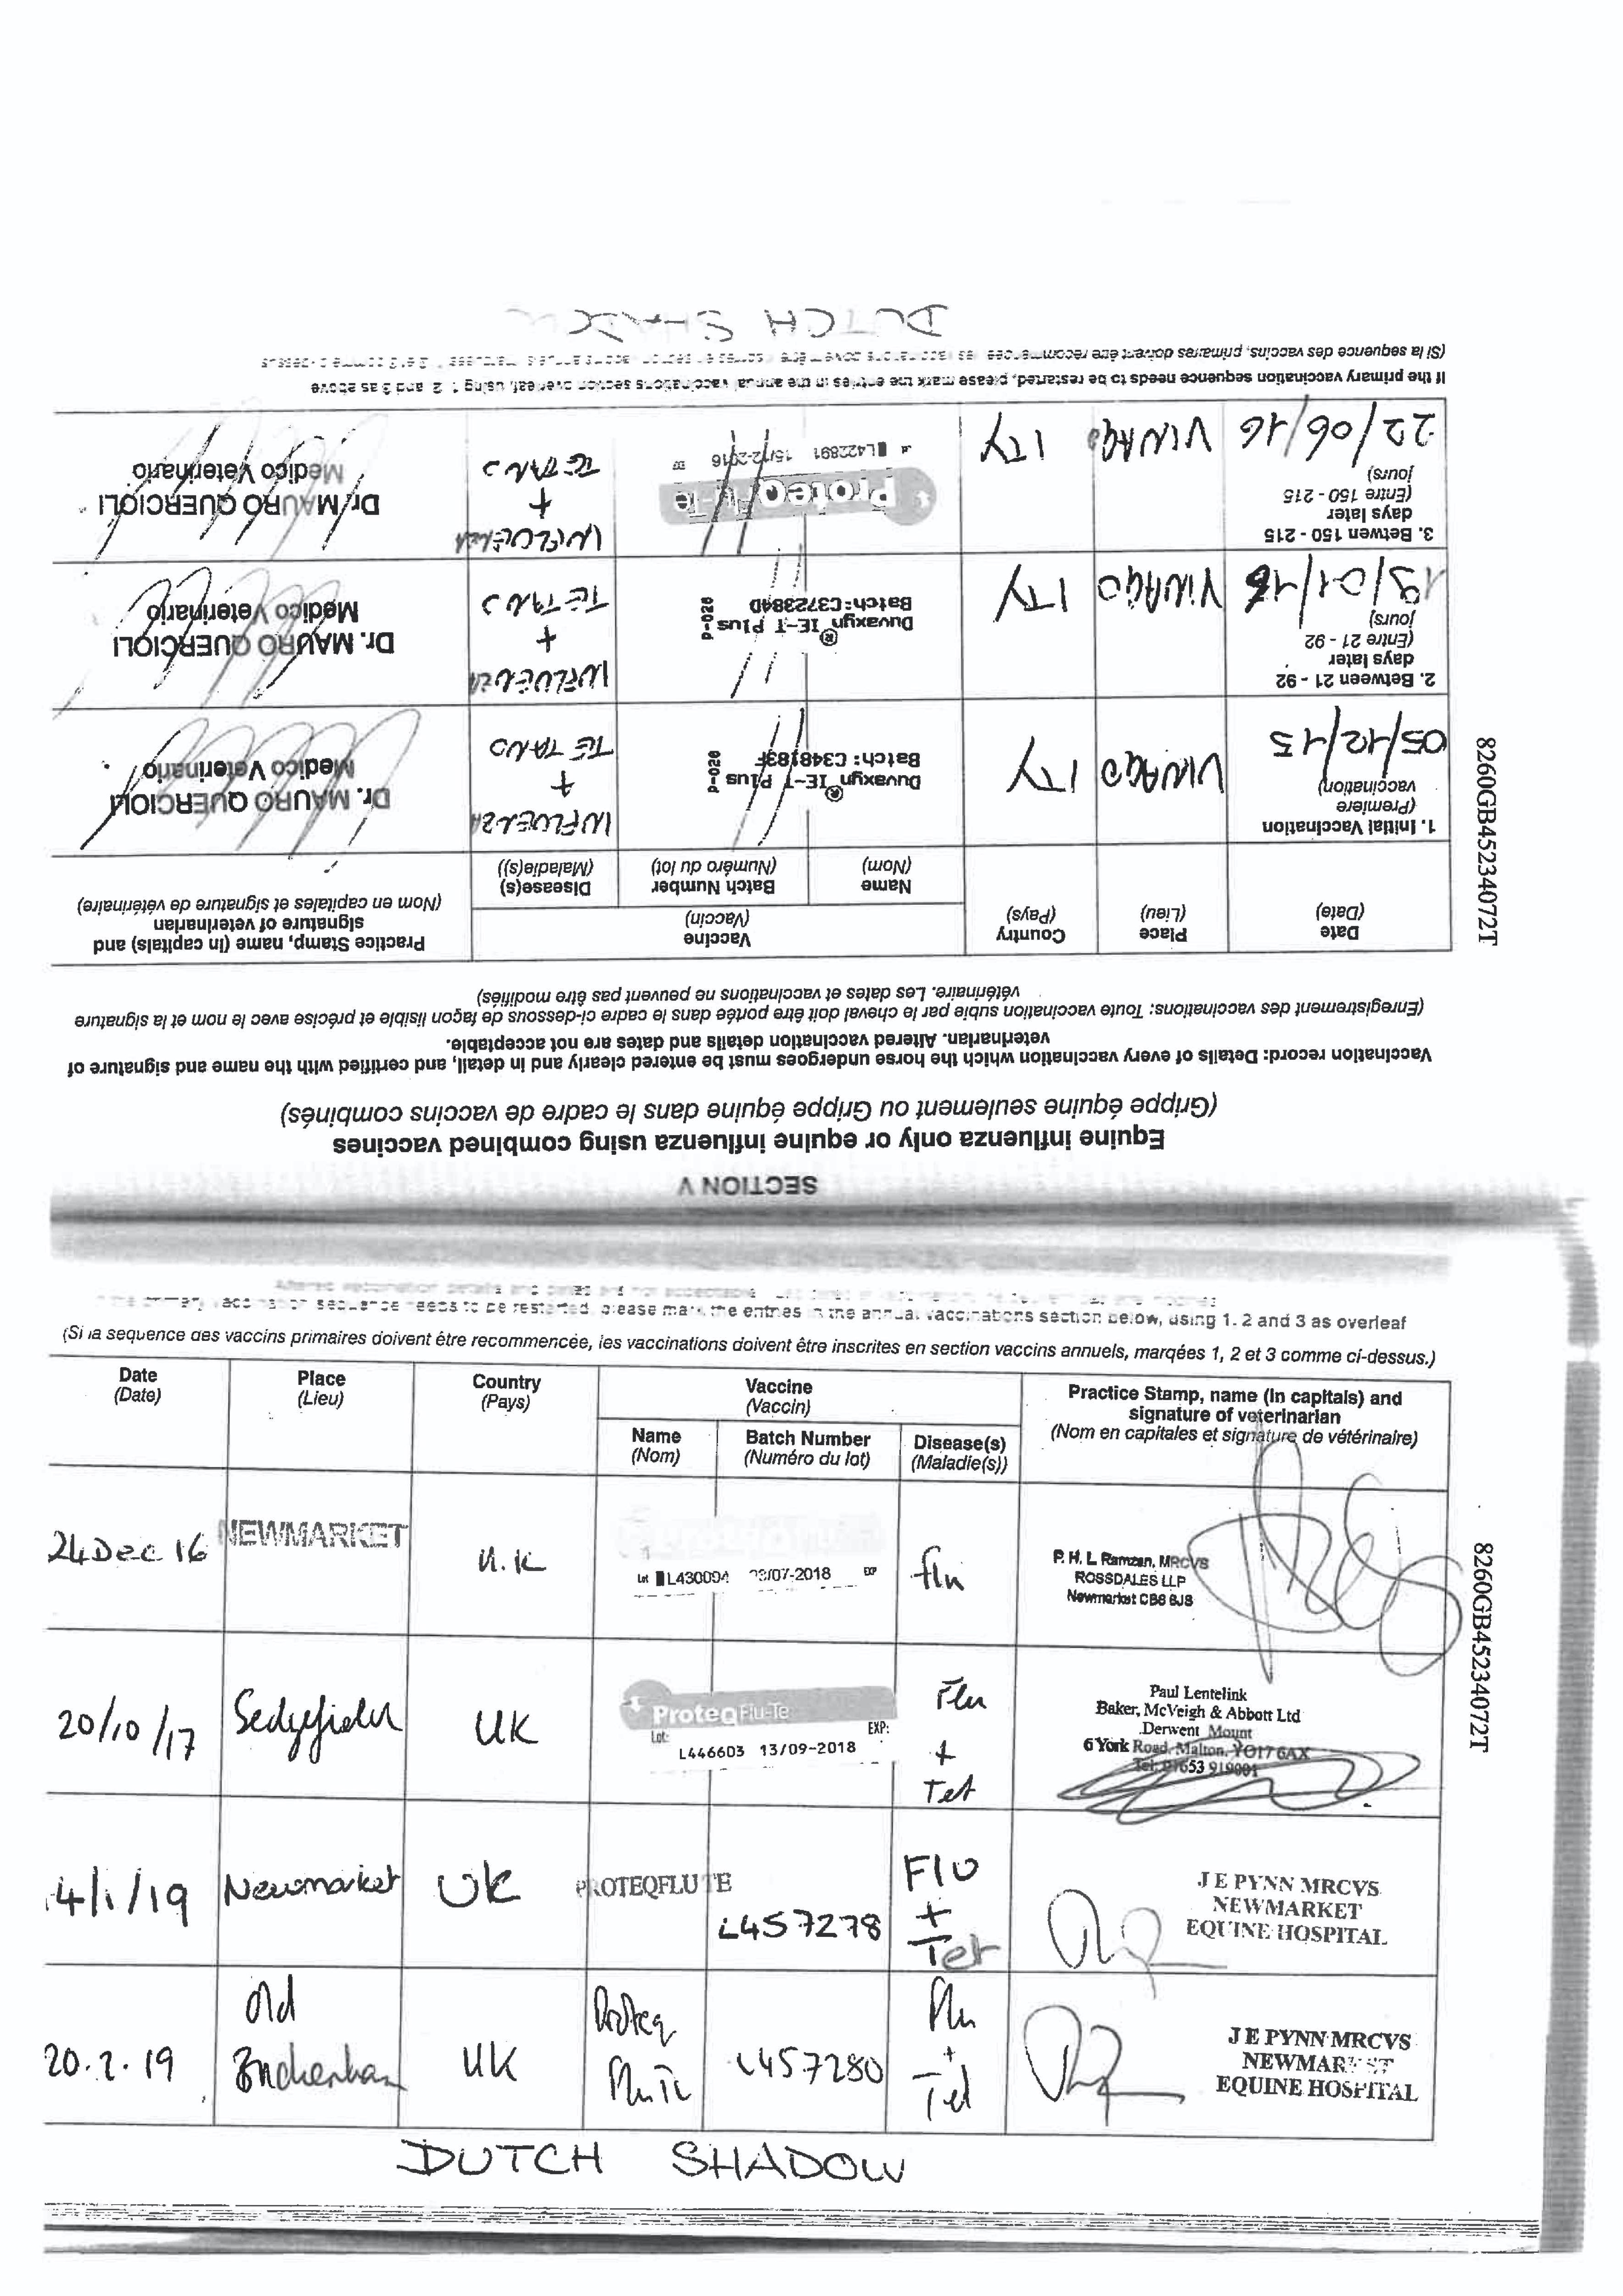 SECTION V
Equine influenza only or equine influenza using combined vaccines
(Grippe équine seulement ou Grippe équine dans le cadre de vaccins combinés)
Vaccination record: Details of every vaccination which the horse undergoes must be entered clearly and in detail, and certified with the name and signature of
veterinarian. Altered vaccination details and dates are not acceptable.
(Enregistrement des vaccinations: Toute vaccination subie par le cheval doit être portée dans le cadre ci-dessous de façon lisible et précise avec le nom et la signature
vétérinaire. Les dates et vaccinations ne peuvent pas être modifiés)
Date
(Date)
Place
(Lieu)
Country
(Pays)
Vaccine
(Vaccin)
Name
(Nom)
Batch Number
(Numéro du lot)
Disease(s)
(Maladie(s))
Practice Stamp, name (in capitals) and
signature of veterinarian
(Nom en capitales et signature de vétérinaire)
1. Initial Vaccination
(Première
vaccination)
05/12/15
VINAGO
ITY
Duvaxyn® IE-T Plus
Batch: C348183F
INFLUENZA
+
TETANO
Dr. MAURO QUERCIOLI
Medico Veterinario
2. Between 21 - 92
days later
(Entre 21 - 92
jours)
19/01/16
VINAGO
ITY
Duvaxyn® IE-T Plus
Batch: C372384D
INFLUENZA
+
TETANO
Dr. MAURO QUERCIOLI
Medico Veterinario
3. Betwen 150 - 215
days later
(Entre 150 - 215
jours)
22/06/16
VINAGO
ITY
ProteqFlu-Te
L422891 15/12-2016
INFLUENZA
+
TETANO
Dr MAURO QUERCIOLI
Medico Veterinario
If the primary vaccination sequence needs to be restarted, please mark the entries in the annual vaccinations section overleaf, using 1, 2 and 3 as above
(Si la sequence des vaccins, primaires doivent être recommencées
DUTCH SHADOW
8260GB45234072T
primary vaccination sequence needs to be restarted, please mark the entries in the annual vaccinations section below, using 1. 2 and 3 as overleaf
(Si la sequence des vaccins primaires doivent être recommencée, les vaccinations doivent être inscrites en section vaccins annuels, marqées 1, 2 et 3 comme ci-dessus.)
Date
(Date)
Place
(Lieu)
Country
(Pays)
Vaccine
(Vaccin)
Name
(Nom)
Batch Number
(Numéro du lot)
Disease(s)
(Maladie(s))
Practice Stamp, name (in capitals) and
signature of veterinarian
(Nom en capitales et signature de vétérinaire)
24 Dec 16
NEWMARKET
U.K
Lot L430094 /07-2018 EXP
flu
P. H. L Ramzan, MRCVS
ROSSDALES LLP
Newmarket CB8 8JS
20/10/17
Sedgefield
UK
ProteqFlu-Te
Lot: EXP:
L446603 13/09-2018
Flu
+
Tet
Paul Lentelink
Baker, McVeigh & Abbott Ltd
Derwent Mount
6 York Road, Malton, YO17 6AX
Tel: 01653 919001
4/1/19
Newmarket
UK
PROTEQFLU TE
L457278
Flu
+
Tet
J E PYNN MRCVS
NEWMARKET
EQUINE HOSPITAL
20.2.19
Old
UK
Proteq
Flu Te
L457280
Flu
+
Tet
J E PYNN MRCVS
NEWMARKET
EQUINE HOSPITAL
DUTCH SHADOW
8260GB45234072T